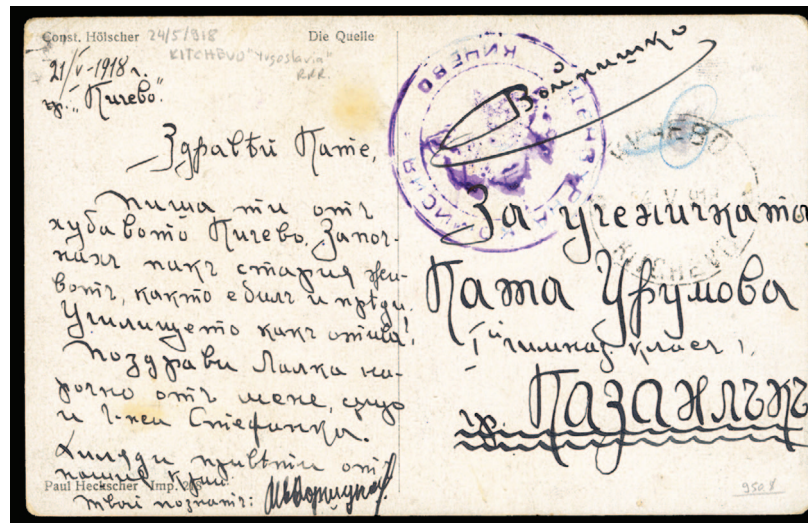 Const. Hölscher 24/5/918 Die Quelle
KITCHEVO "Yugoslavia"
RRR.
21/V-1918 г.
гр. "Кичево".
Здравѣй Кате,
Пиша ти отъ
хубавото Кичево. Започ-
нахъ пакъ стария жи-
вотъ, както е билъ и прѣди.
Училището какъ отива!
Поздрави Лалка на-
рочно отъ мене, също
и г-ца Стефанка.
Хиляди привѣти отъ
нашия край
Твой познатъ:
Paul Heckscher Imp. 216
Войнишко
КИЧЕВО
КИЧЕВО
За ученичката
Ката Урумова
гимназ. класъ
гр. Казанлъкъ
950 8